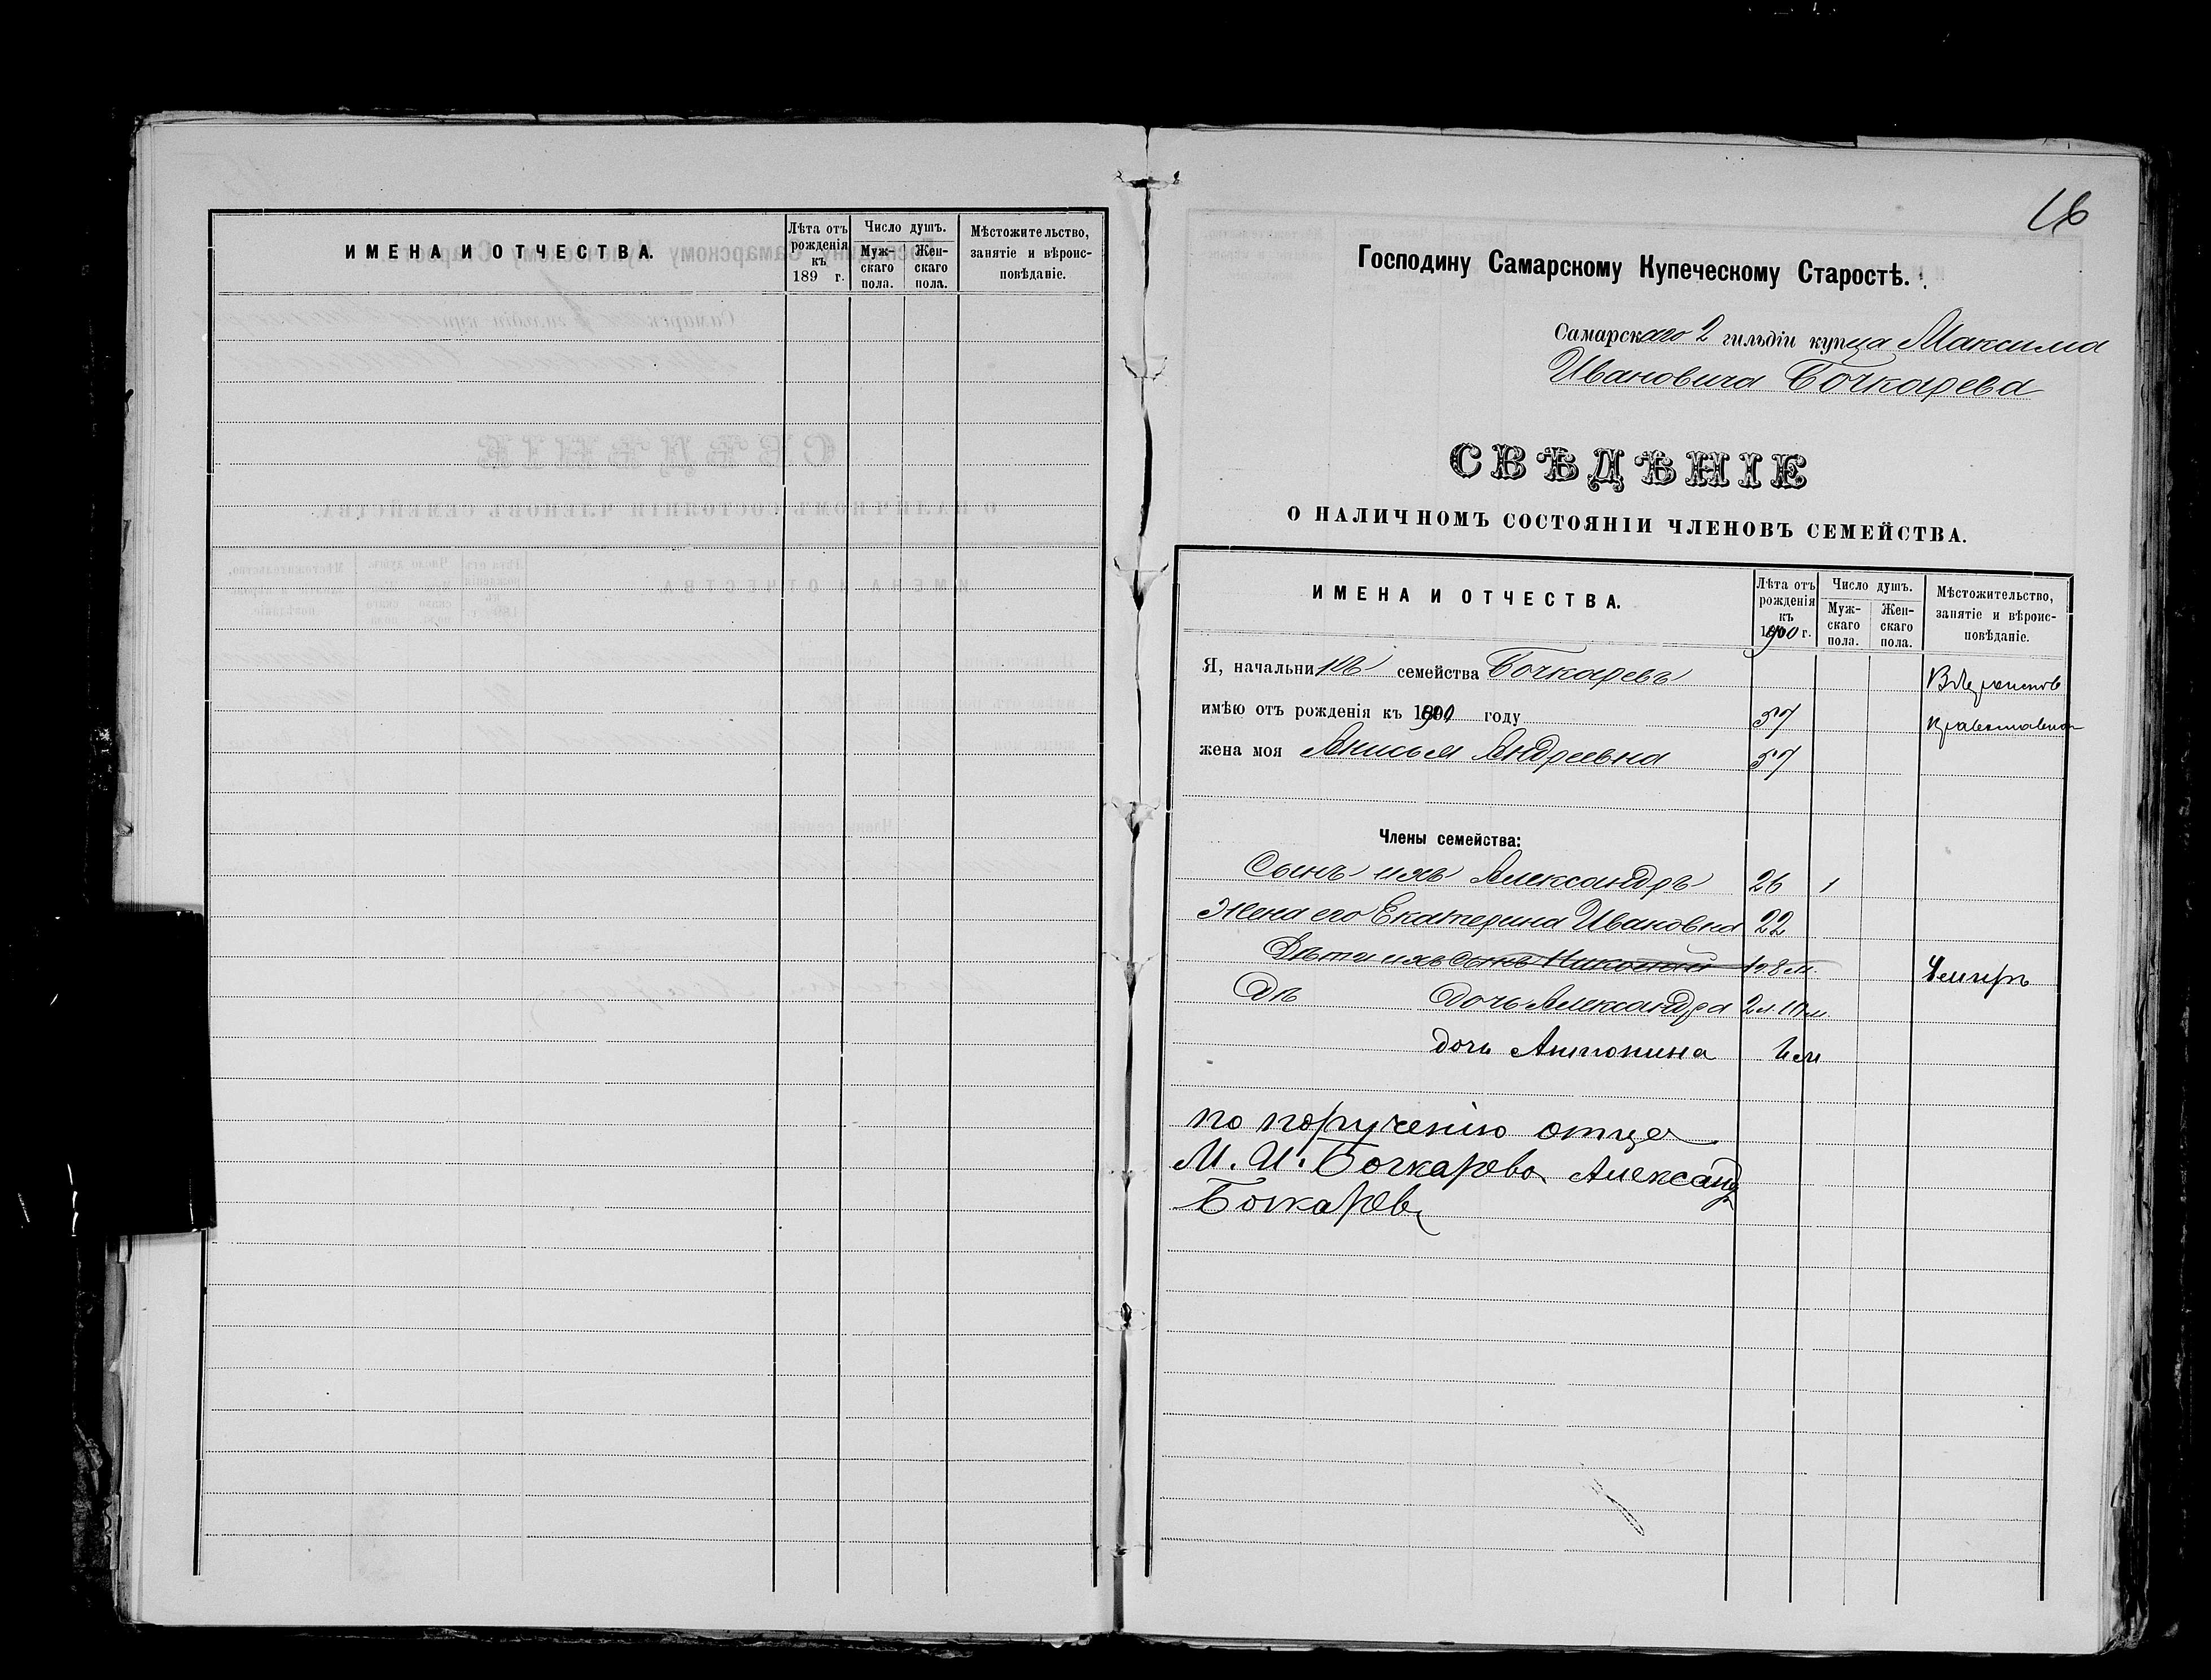 ИМЕНА И ОТЧЕСТВА.
Лѣта отъ рожденія къ 189 г.
Число душъ.
Муж-скаго пола.
Жен-скаго пола.
Мѣстожительство, занятіе и вѣроис-повѣданіе.
16
Господину Самарскому Купеческому Старостѣ.
Самарскаго 2 гильдіи купца Максима
Ивановича Бочкарева
СВѢДѢНІЕ
О НАЛИЧНОМЪ СОСТОЯНІИ ЧЛЕНОВЪ СЕМЕЙСТВА.
ИМЕНА И ОТЧЕСТВА.
Лѣта отъ рожденія къ 1900 г.
Число душъ.
Муж-скаго пола.
Жен-скаго пола.
Мѣстожительство, занятіе и вѣроис-повѣданіе.
Я, начальникъ семейства Бочкаревъ
имѣю отъ рожденія къ году 57
жена моя Анисья Андреевна 57
Члены семейства:
Сынъ ихъ Александръ 26 1
Жена его Екатерина Ивановна 22
Дѣти ихъ сынъ 8 м. Умеръ
Дѣ дочь Александра 2 л. 10 м.
дочь Антонина м
по порученію отца
М. И. Бочкарева Александ
Бочкаревъ